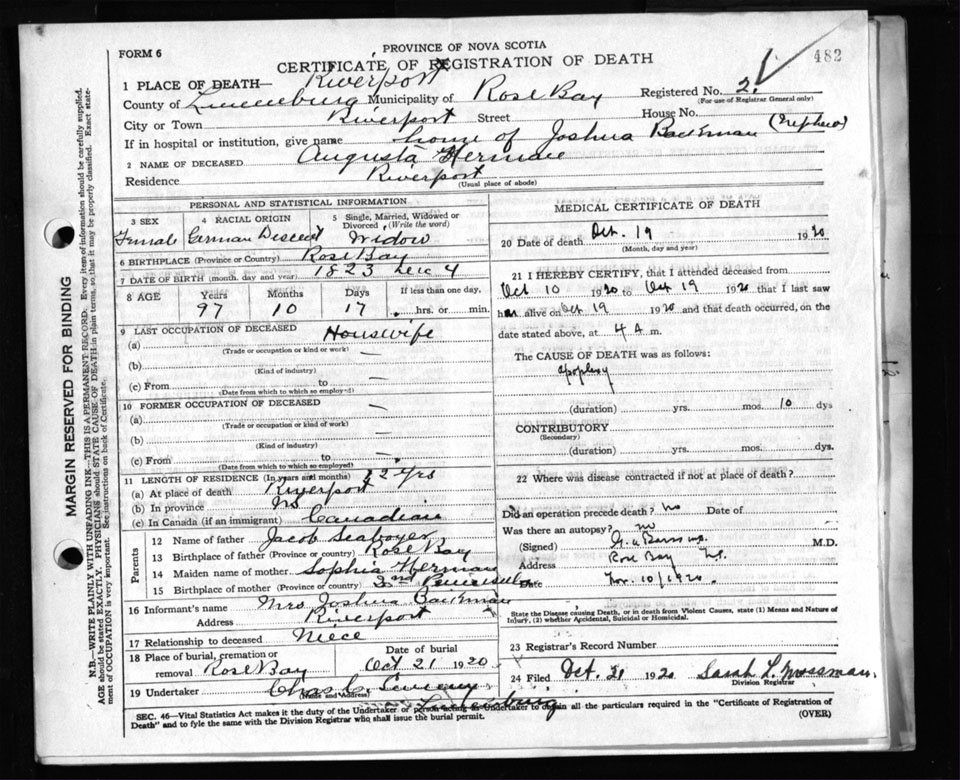 FORM 6
PROVINCE OF NOVA SCOTIA
CERTIFICATE OF REGISTRATION OF DEATH
482
1 PLACE OF DEATH— Riverport
County of Lunenburg Municipality of Rose Bay Registered No. 2.
(For use of Registrar General only)
City or Town Riverport Street House No.
If in hospital or institution, give name home of Joshua Backman (Nephew)
2 NAME OF DECEASED Augusta Herman
Residence Riverport
(Usual place of abode)
PERSONAL AND STATISTICAL INFORMATION
3 SEX Female
4 RACIAL ORIGIN German Descent
5 Single, Married, Widowed or Divorced (Write the word) Widow
6 BIRTHPLACE (Province or Country) Rose Bay
7 DATE OF BIRTH (month, day and year) 1823 Dec 4
8 AGE Years Months Days If less than one day,
97 10 17 hrs. or min.
9 LAST OCCUPATION OF DECEASED Housewife
(a)
(Trade or occupation or kind or work) —
(b)
(Kind of industry)
(c) From to —
(Date from which to which so employed)
10 FORMER OCCUPATION OF DECEASED —
(a)
(Trade or occupation or kind of work)
(b) —
(Kind of industry)
(c) From to —
(Date from which to which so employed)
11 LENGTH OF RESIDENCE (In years and months) 22 yrs
(a) At place of death Riverport
(b) In province NS
(c) In Canada (if an immigrant) Canadian
Parents
12 Name of father Jacob Seaboyer
13 Birthplace of father (Province or country) Rose Bay
14 Maiden name of mother Sophia Herman
15 Birthplace of mother (Province or country) 2nd Peninsula
16 Informant's name Mrs Joshua Backman
Address Riverport
17 Relationship to deceased Niece
18 Place of burial, cremation or removal Rose Bay
Date of burial Oct 21 1920
19 Undertaker Chas C
(Name and Address) Lunenburg
MEDICAL CERTIFICATE OF DEATH
20 Date of death Oct. 19 1920
(Month, day and year)
21 I HEREBY CERTIFY, that I attended deceased from
Oct 10 1920 to Oct 19 1920 that I last saw
her alive on Oct 19 1920 and that death occurred, on the
date stated above, at 4 A m.
The CAUSE OF DEATH was as follows:
Apoplexy
(duration) yrs. mos. 10 dys
CONTRIBUTORY
(Secondary)
(duration) yrs. mos. dys.
22 Where was disease contracted if not at place of death?
Did an operation precede death? No Date of
Was there an autopsy? no
(Signed) M.D.
Address Rose Bay
Date Nov. 10/1920.
State the Disease causing Death, or in death from Violent Causes, state (1) Means and Nature of
Injury, (2) whether Accidental, Suicidal or Homicidal.
23 Registrar's Record Number
24 Filed Oct. 21 1920 Sarah L. Mossman,
Division Registrar
SEC. 46—Vital Statistics Act makes it the duty of the Undertaker or person acting as Undertaker to obtain all the particulars required in the "Certificate of Registration of
Death" and to fyle the same with the Division Registrar who shall issue the burial permit. (OVER)
MARGIN RESERVED FOR BINDING
N.B.—WRITE PLAINLY WITH UNFADING INK—THIS IS A PERMANENT RECORD. Every item of information should be carefully supplied.
AGE should be stated EXACTLY. PHYSICIANS should STATE CAUSE OF DEATH in plain terms, so that it may be properly classified. Exact state-
ment of OCCUPATION is very important. See instructions on back of Certificate.